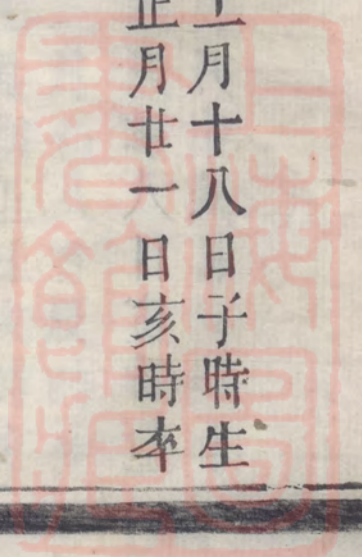 月十八日子時生
正月廿一日亥時卒